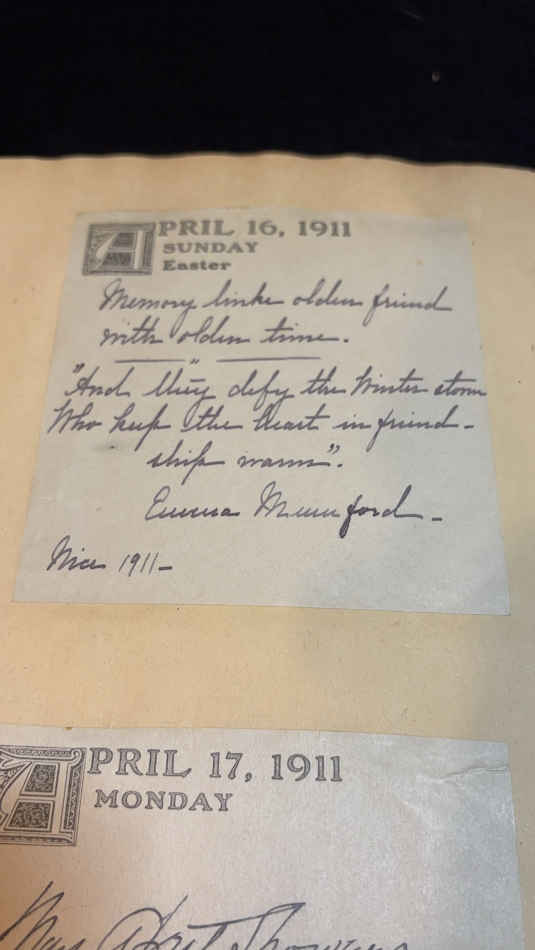 APRIL 16, 1911
SUNDAY
Easter
Memory links olden friend
with olden time.
"And they defy the Winter storm
Who keep the heart in friend-
ship warm".
Emma Mumford -
Nice 1911-
APRIL 17, 1911
MONDAY